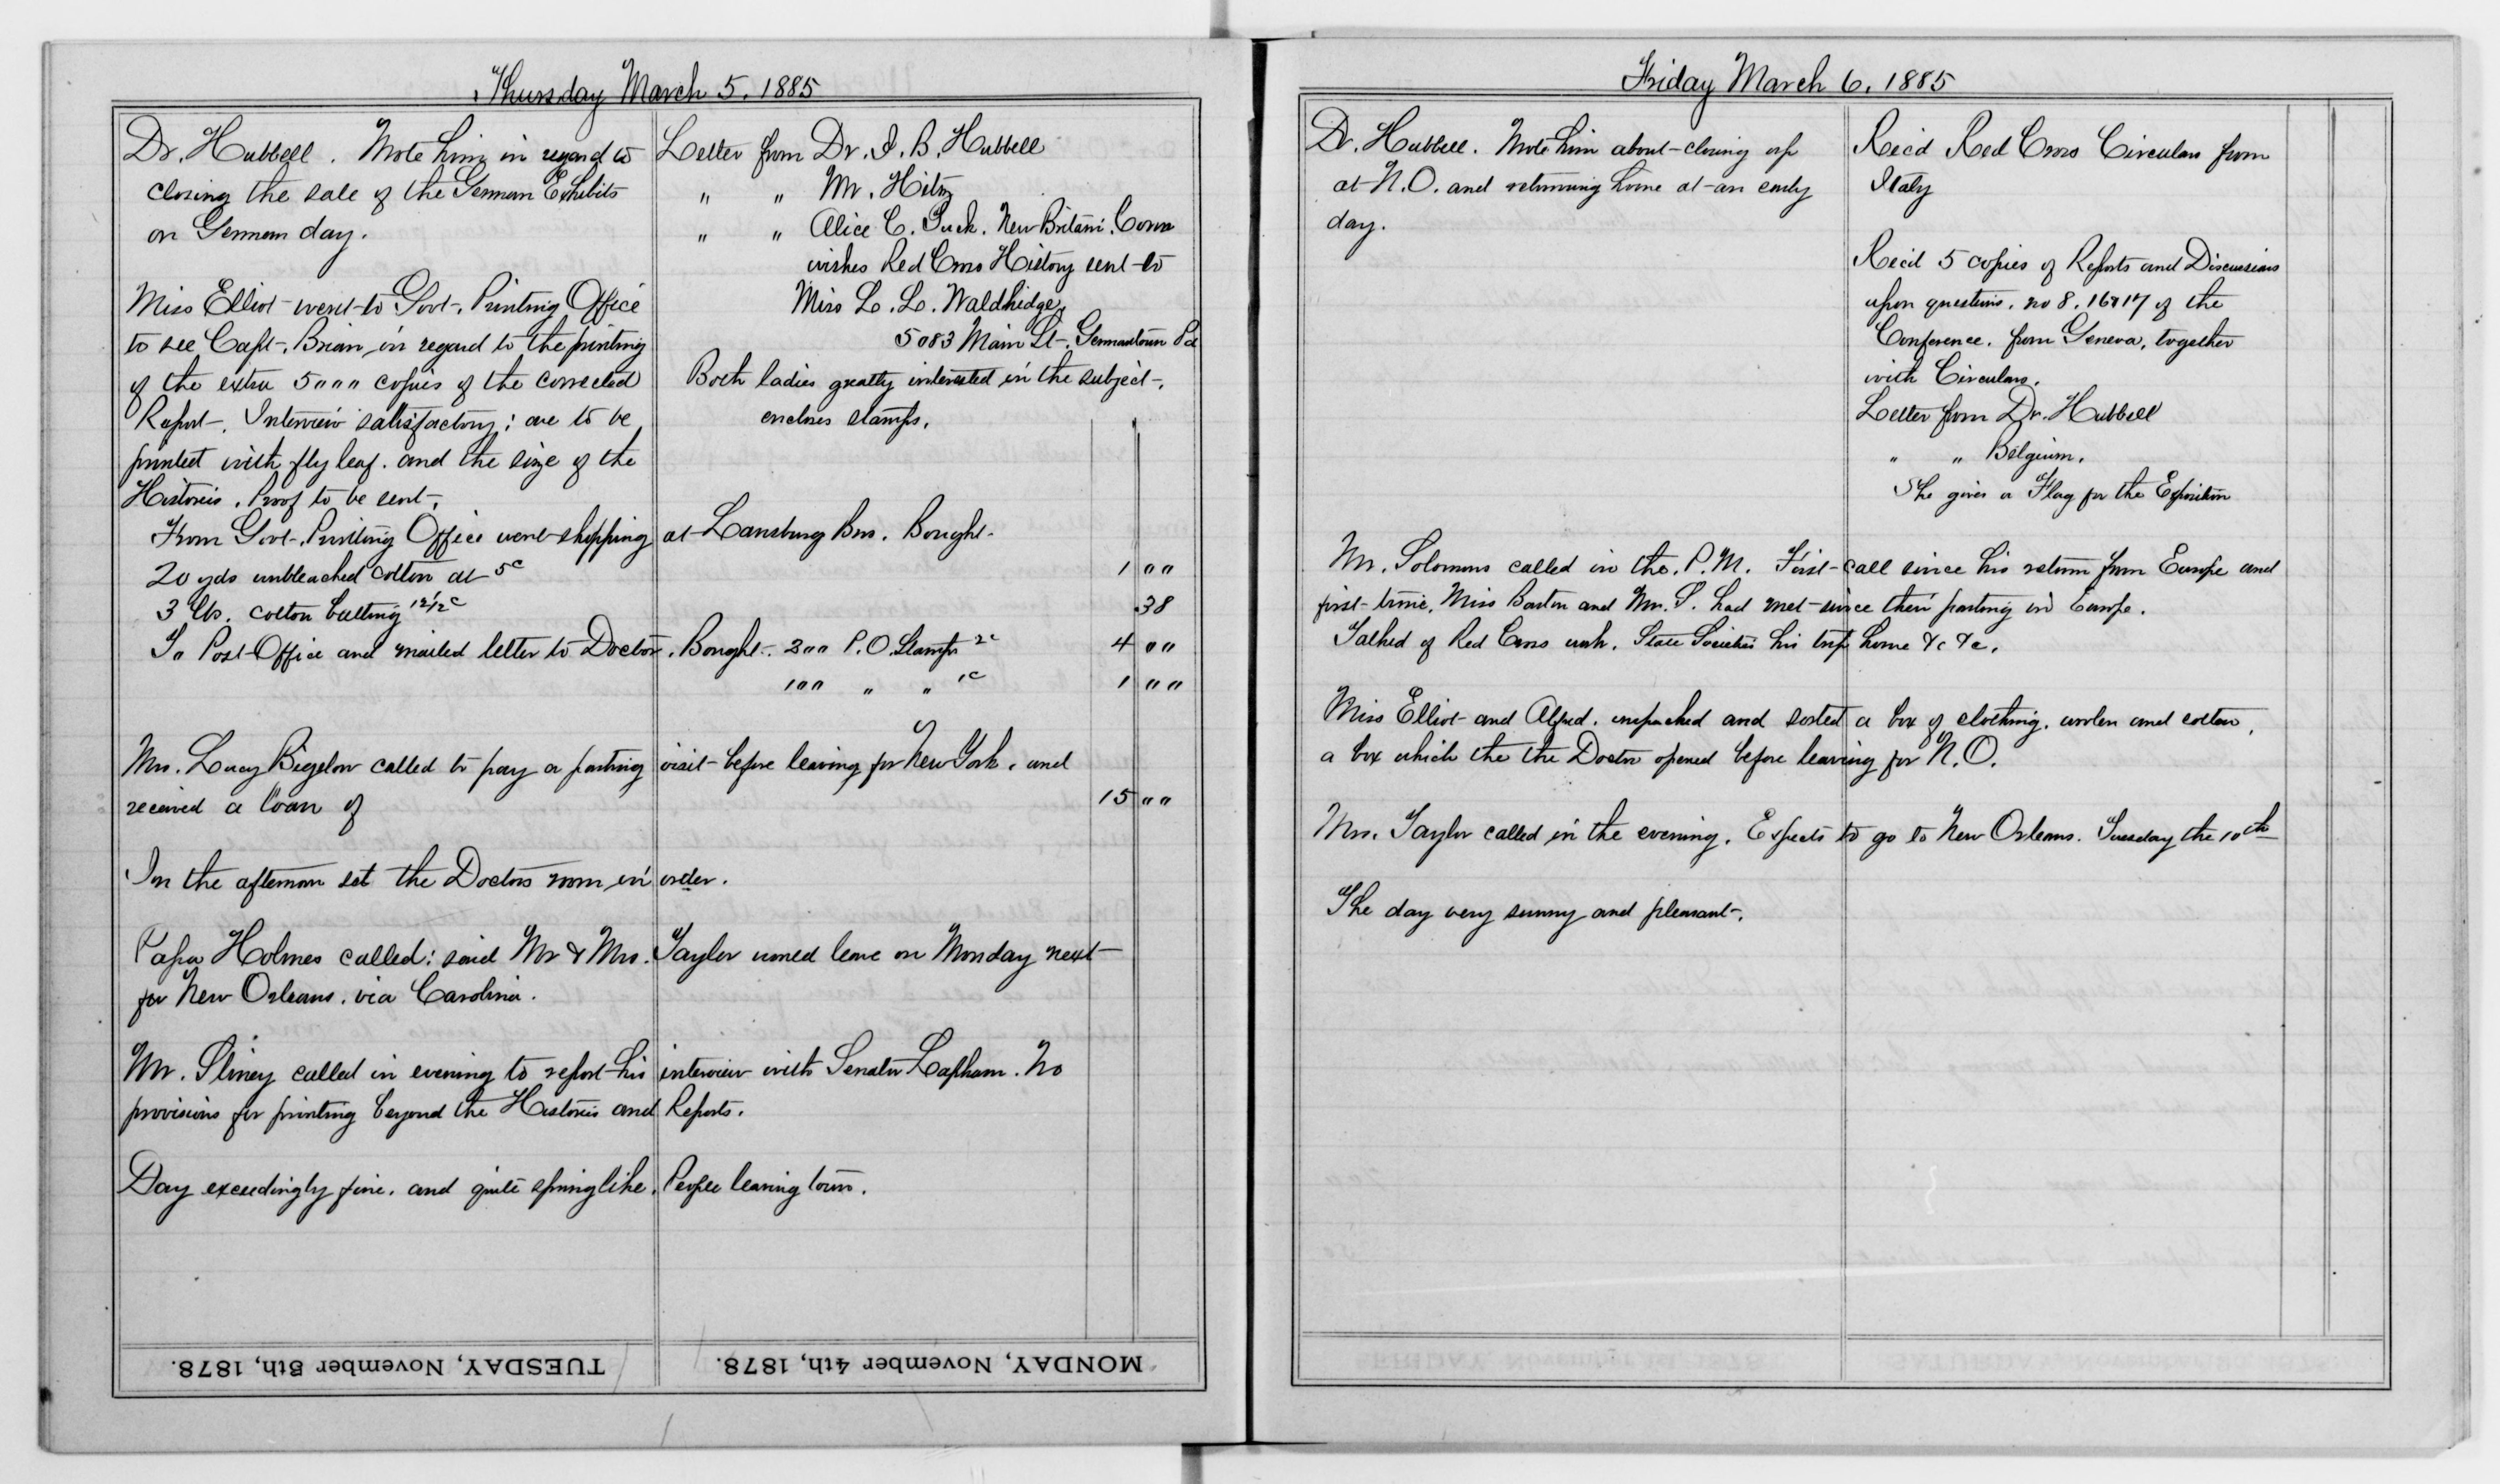 Thursday March 5, 1885
Dr. Hubbell. Wrote him in regard to
closing the sale of the German Exhibits
on German day.
Miss Elliot went to Govt. Printing Office
to see Capt. Brian in regard to the printing
of the extra 5000 copies of the corrected
Report. Interview satisfactory; are to be
printed with fly leaf. and the size of the
Histories. Proof to be sent.
Letter from Dr. J. B. Hubbell
" " Mr. Hitz
" " Alice C. New Britain. Conn
wishes Red Cross History sent to
Miss L. L.
5083 Main St. Germantown Pa
Both ladies greatly interested in the subject.
encloses stamps.
From Govt. Printing Office went shopping at Lansburg Bros. Bought.
20 yds unbleached cotton at 5c 1 00
3 lbs. cotton batting 12 1/2c 38
To Post Office and mailed letter to Doctor. Bought. 200 P.O. Stamps 2c 4 00
100 " " 1c 1 00
Mrs. Lucy Bigelow called to pay a parting visit before leaving for New York. and
received a loan of 15 00
In the afternoon set the Doctors room in order.
Papa Holmes called; said Mr & Mrs. Taylor would leave on Monday next
for New Orleans. via Carolina.
Mr. Sliney called in evening to report his interview with Senator Lapham. No
provisions for printing beyond the Histories and Reports.
Day exceedingly fine. and quite springlike. People leaving town.
TUESDAY, November 5th, 1878.
MONDAY, November 4th, 1878.
Friday March 6, 1885
Dr. Hubbell. Wrote him about closing up
at N.O. and returning home at an early
day.
Rec'd Red Cross Circulars from
Italy
Rec'd 5 copies of Reports and Discussions
upon questions. no 8. 16 & 17 of the
Conference. from Geneva, together
with Circulars.
Letter from Dr. Hubbell
" " Belgium.
She gives a Flag for the Exposition
Mr. Solomons called in the. P.M. First call since his return from Europe and
first time. Miss Barton and Mr. S. had met since their parting in Europe.
Talked of Red Cross work. State Societies his trip home &c &c.
Miss Elliot and Alfred. unpacked and sorted a box of clothing. woolen and cotton.
a box which the the Doctor opened before leaving for N.O.
Mrs. Taylor called in the evening. Expects to go to New Orleans. Tuesday the 10th
The day very sunny and pleasant.